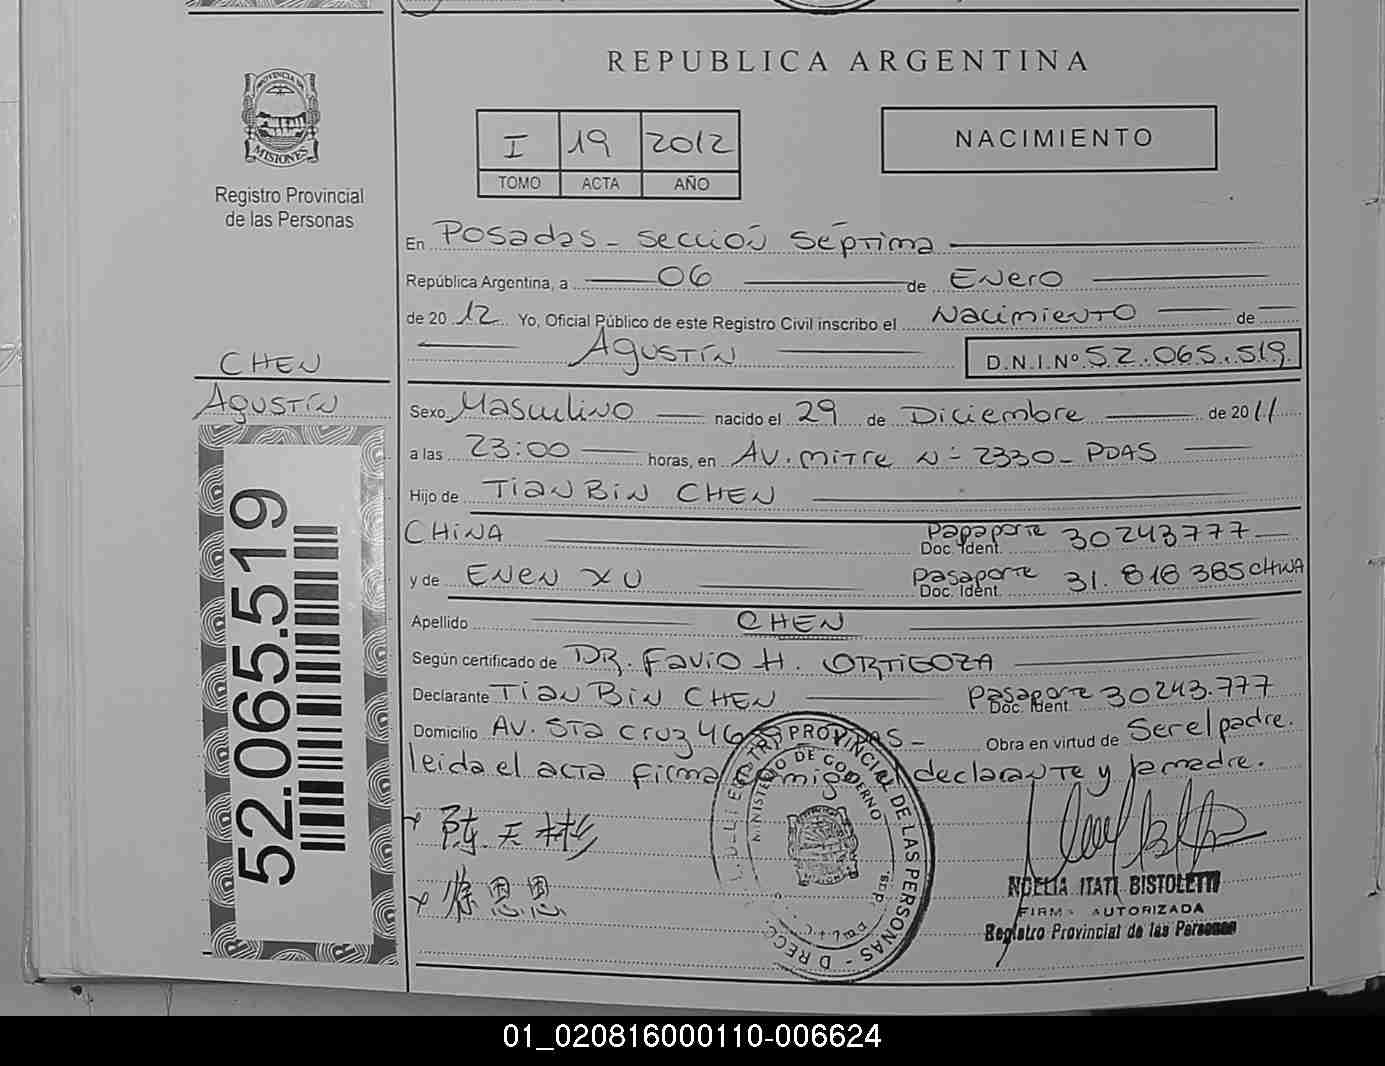 REPUBLICA ARGENTINA
PROVINCIA DE
MISIONES
Registro Provincial
de las Personas
I 19 2012
TOMO ACTA AÑO
NACIMIENTO
En Posadas - sección séptima
República Argentina, a 06 de Enero
de 2012 Yo, Oficial Público de este Registro Civil inscribo el Nacimiento de
Agustín D.N.I.Nº 52.065.519
CHEN
Agustín
Sexo Masculino nacido el 29 de Diciembre de 2011
a las 23:00 horas, en AV. mitre Nº 2330 - PDAS
Hijo de TianBin CHEN
CHINA Pasaporte Doc. Ident. 30243777
y de ENEN XU Pasaporte Doc. Ident. 31.818385 CHINA
Apellido CHEN
Según certificado de DR. Favio H. ORTIGOZA
Declarante Tian Bin CHEN Pasaporte Doc. Ident 30243.777
Domicilio AV. Sta Cruz Obra en virtud de Ser el padre.
leida el acta firma declarante y la madre.
x 陈天彬
x 徐恩恩
REGISTRO PROVINCIAL DE LAS PERSONAS
MINISTERIO DE GOBIERNO
NOELIA ITATI BISTOLETTI
FIRMA AUTORIZADA
Registro Provincial de las Personas
52.065.519
01_020816000110-006624